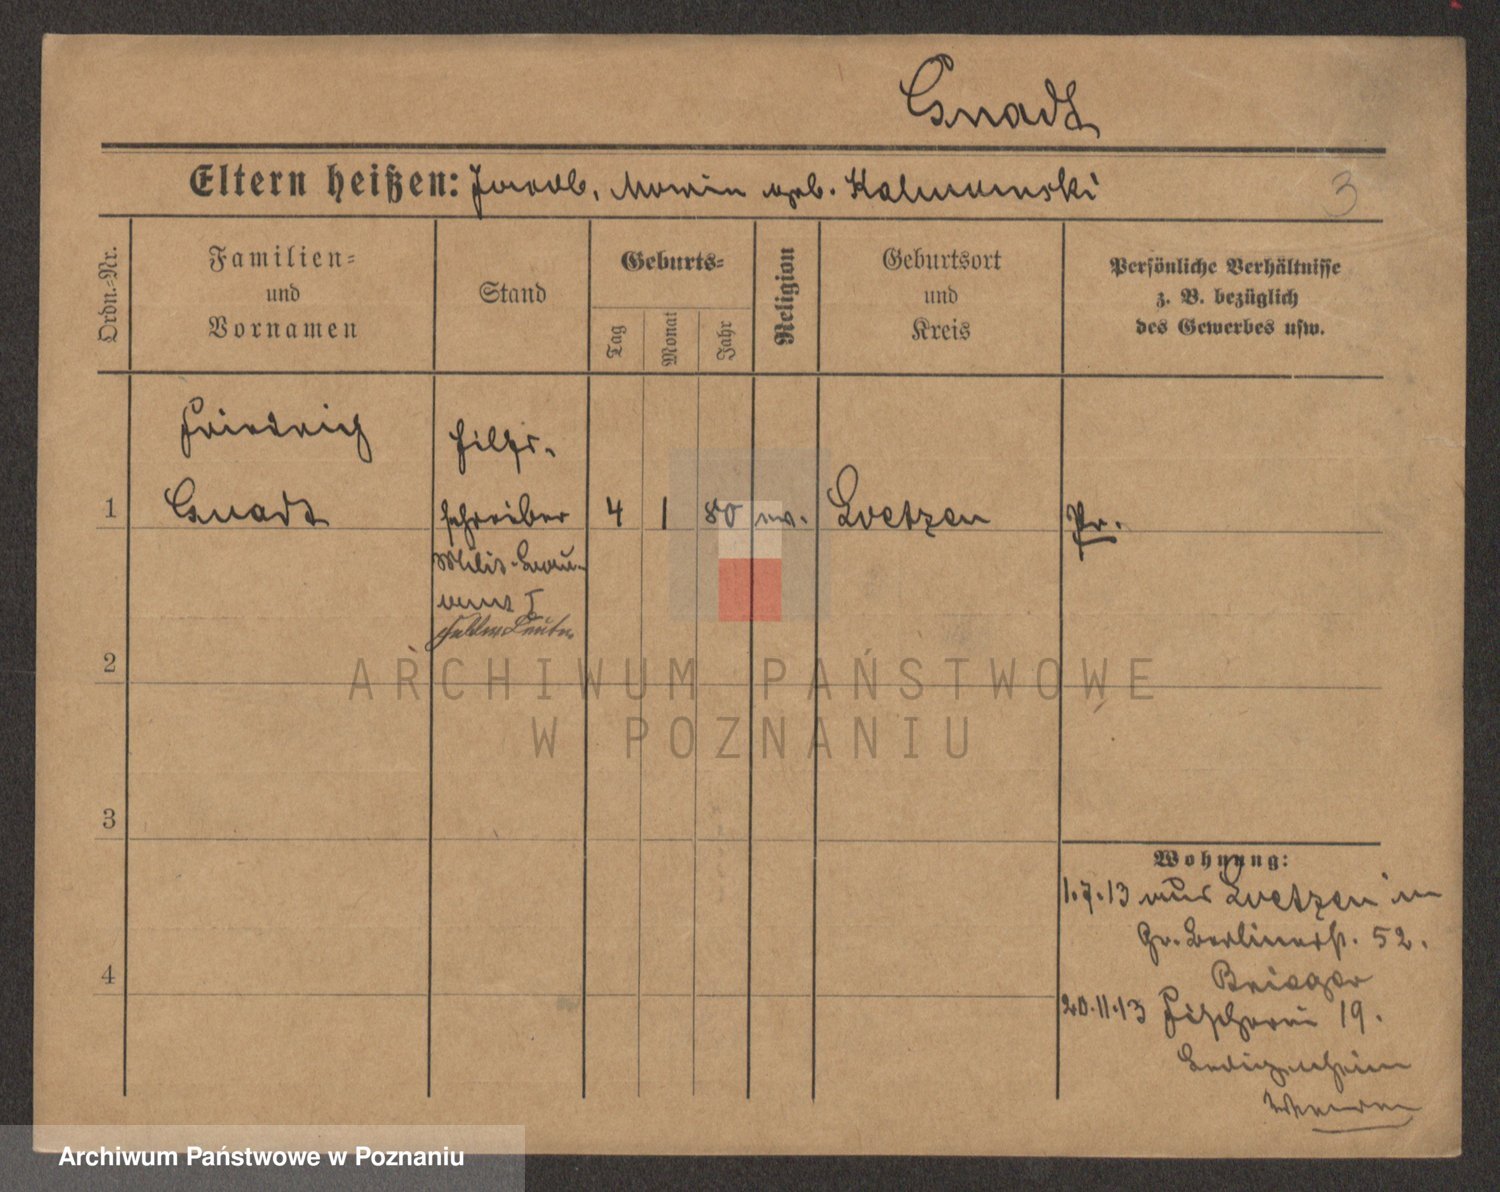 Gnadt
Eltern heißen: Jacob, Marie geb. Kalinowski
3
Ordn.=Nr.
Familien=
und
Vornamen
Stand
Geburts=
Tag
Monat
Jahr
Religion
Geburtsort
und
Kreis
Persönliche Verhältnisse
z. B. bezüglich
des Gewerbes usw.
Friedrich
Hilfs-
1 Gnadt schreiber 4 1 80 ev. Loetzen Pr.
Milit.-Bau-
amt I
2
3
4
Wohnung:
1.7.13 aus Loetzen in
Gr. Berlinerst. 52.
Brieger
20.11.13 Fischerei 19.
Ledigenheim
ARCHIWUM PAŃSTWOWE
W POZNANIU
Archiwum Państwowe w Poznaniu